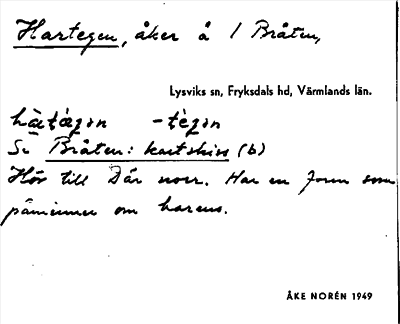 Hartegen, åker å 1 Bråten,
Lysviks sn, Fryksdals hd, Värmlands län.
hàṭæ̀gən -tègən
Se Bråten: kartskiss (b)
Hör till Där norr. Har en form som
påminner om harens.
ÅKE NORÉN 1949